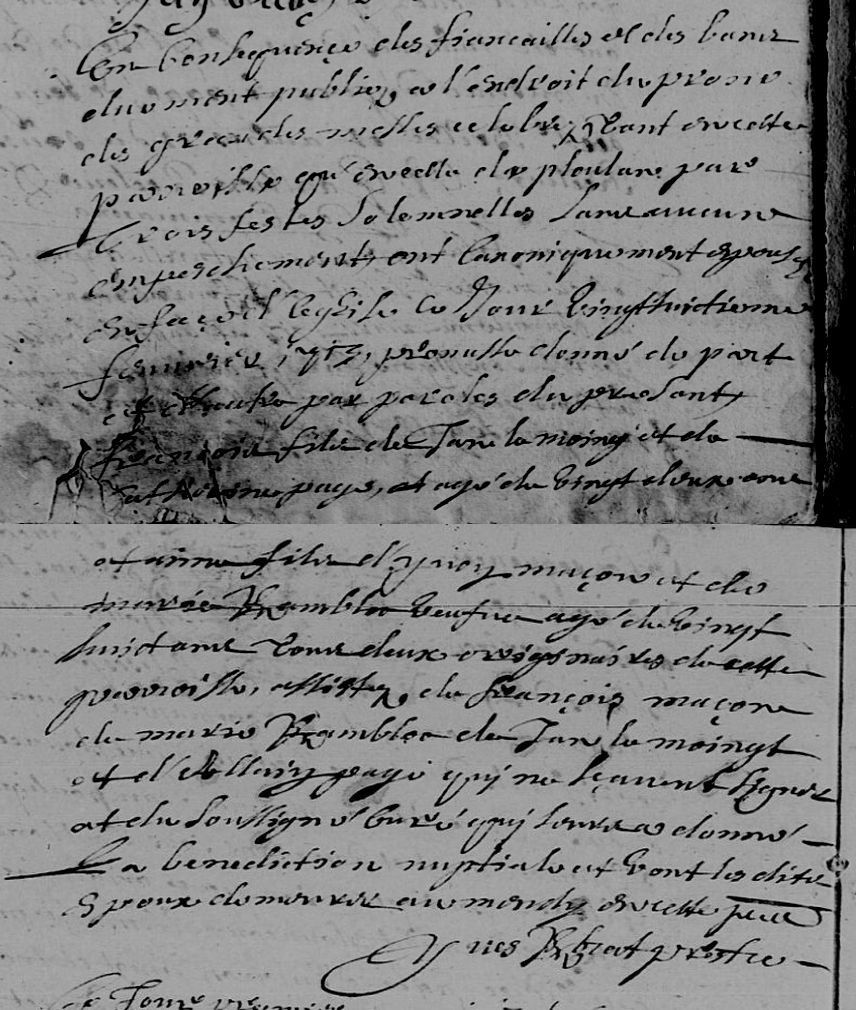 En Consequence des fiancailles et des bans
duement publiez a l'endroit du prone
des grandes messes celebrez tant en cette
parroisse qu'en celle de ploulan par
trois festes Solemnelles Sans aucune
empeschement, ont Canoniquement epousez
en façe d'leglise ce Jour Vingthuictieme
feuurier 1713, promesse donné de part
et d'autre par paroles du presant,
François fils de Jan le moing et de
page, et agé de Vingt deux ans
et anne fille d'yvon maçon et de
marie Veufue agé de Vingt
huict ans tous deux originaires de cette
parroisse, assistez de françois maçon
de marie de Jan le moingt
et d' page qui ne sçauent Signer
et du Soussigné Curé qui leur a donné
La benediction nuptiale et Vont les dits
Epoux demeurer au mendy en cette
Yves prestre
Le Jour premier